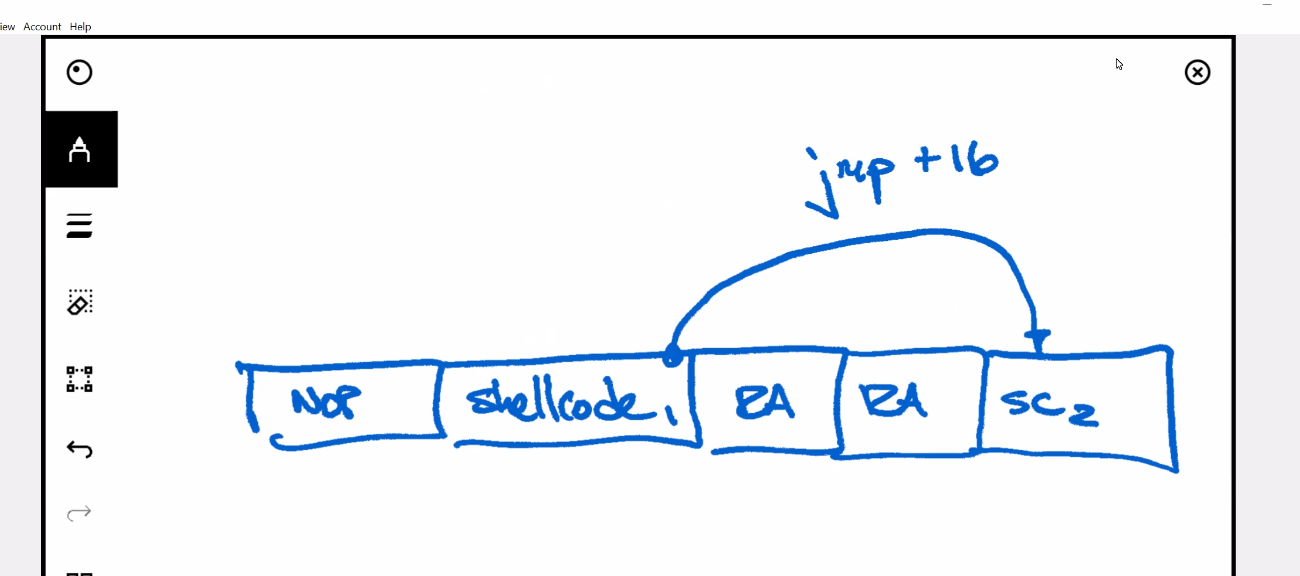 Account Help
jmp +16
NOP shellcode1 RA RA SC2